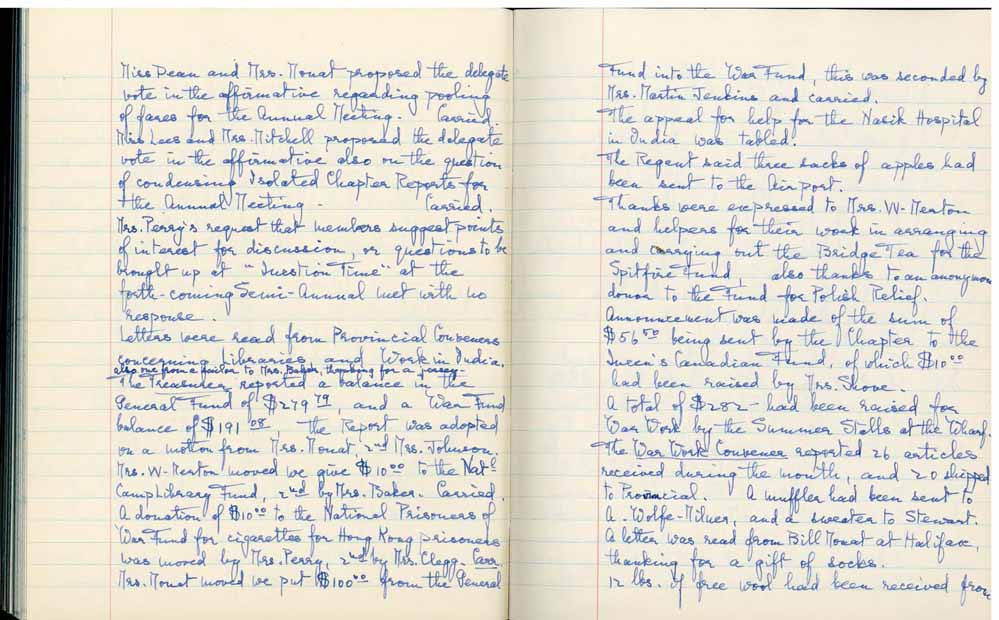 Miss Dean and Mrs. Monat proposed the delegate
vote in the affirmative regarding pooling
of fares for the Annual Meeting. Carried.
Miss Lees and Mrs. Mitchell proposed the delegate
vote in the affirmative also on the question
of condensing Isolated Chapter Reports for
the Annual Meeting. Carried.
Mrs. Perry's request that members suggest points
of interest for discussion, or questions to be
brought up at "Question Time" at the
forth-coming Semi-Annual met with no
response.
Letters were read from Provincial Conveners
concerning Libraries, and Work in India.
also one from a sailor to Mrs. Baker, thanking for a jersey-
The Treasurer reported a balance in the
General Fund of $279 79, and a War Fund
balance of $191 08, the Report was adopted
on a motion from Mrs. Monat, 2nd Mrs. Johnson.
Mrs. W-Merton moved we give $10 00 to the Nat'l
Camp Library Fund, 2nd by Mrs. Baker. Carried.
A donation of $10 00 to the National Prisoners of
War Fund for cigarettes for Hong Kong prisoners
was moved by Mrs. Perry, 2nd by Mrs. Clegg. Carr.
Mrs. Monat moved we put $100 00 from the General
Fund into the War Fund, this was seconded by
Mrs. Martin Jenkins and carried.
The appeal for help for the Nasik Hospital
in India was tabled.
The Regent said three sacks of apples had
been sent to the Airport.
Thanks were expressed to Mrs. W-Merton
and helpers for their work in arranging
and carrying out the Bridge Tea for the
Spitfire Fund, also thanks to an anonymous
donor to the Fund for Polish Relief.
Announcement was made of the sum of
$56 50 being sent by the Chapter to the
Queen's Canadian Fund, of which $10 00
had been raised by Mrs. Shove.
A total of $282- had been raised for
War Work by the Summer Stalls at the Wharf.
The War Work Convener reported 26 articles
received during the month, and 20 shipped
to Provincial. A muffler had been sent to
A. Wolfe-Milner, and a sweater to Stewart.
A letter was read from Bill Monat at Halifax,
thanking for a gift of socks.
12 lbs. of free wool had been received from